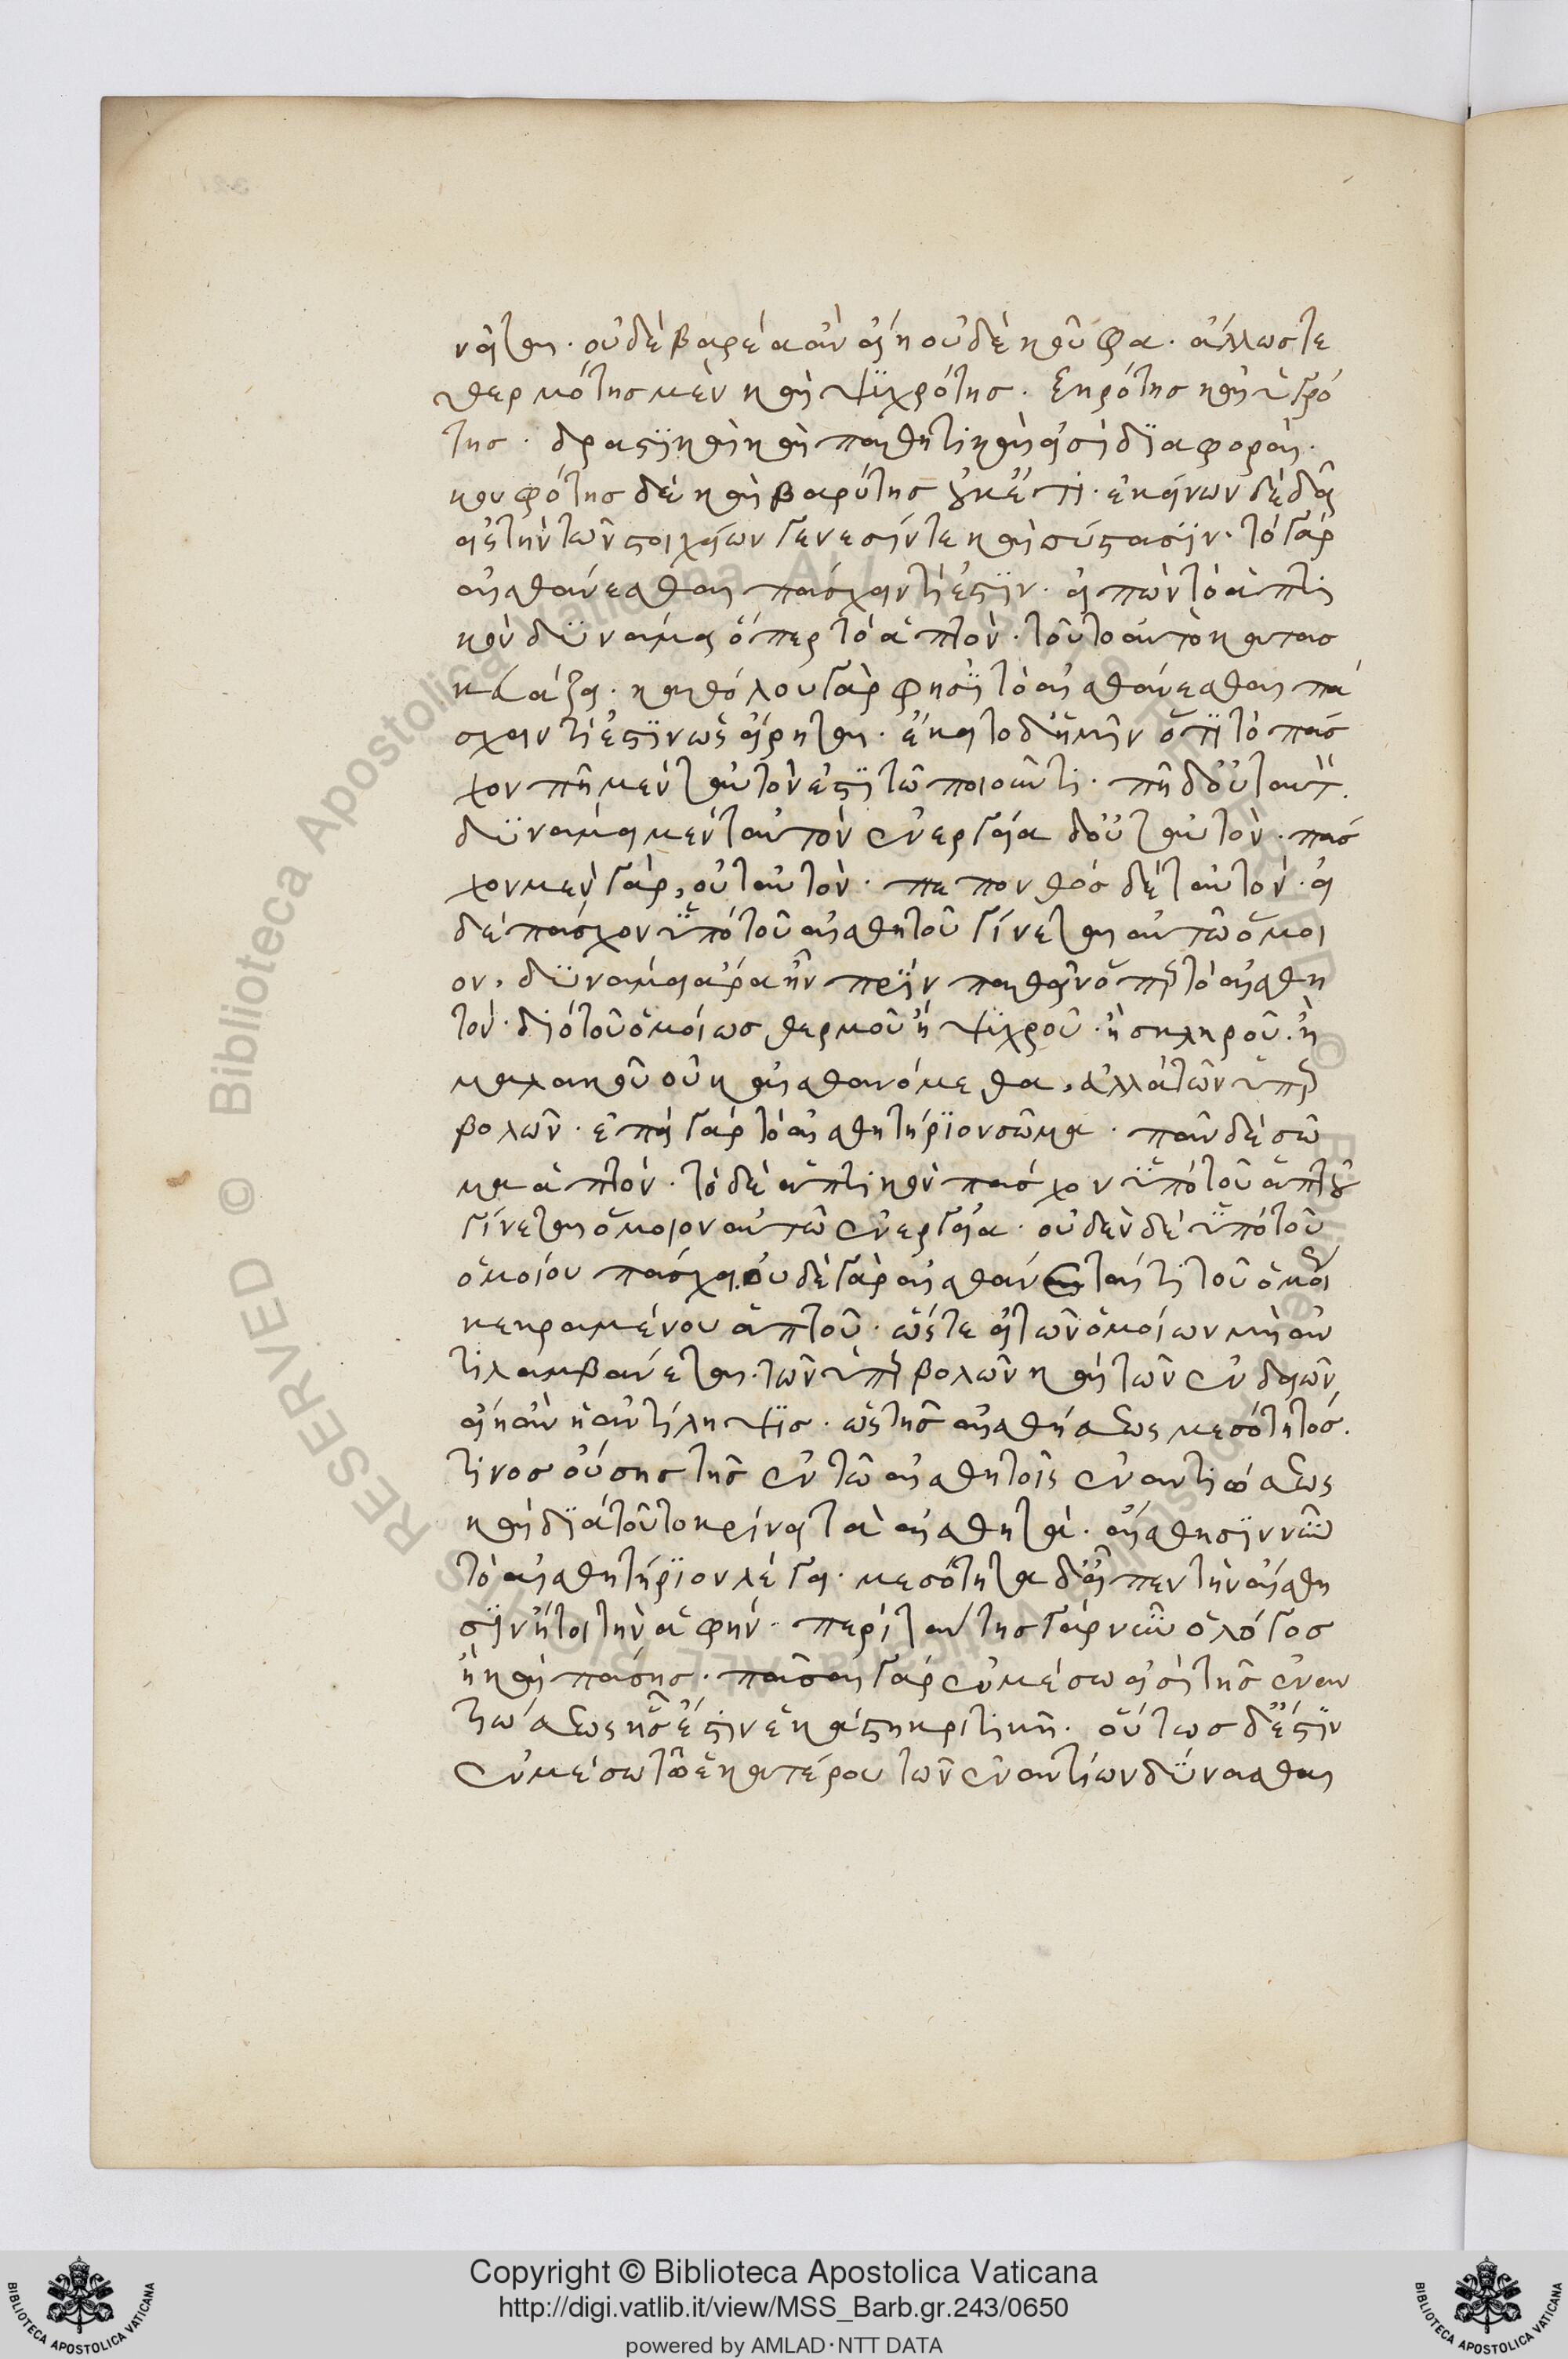 νεῖται. οὐδὲ βαρέα ἂν εἴη οὐδὲ κοῦφα. ἄλλως τε
θερμότης μὲν καὶ ψϋχρότης. ξηρότης καὶ ὑγρό
της. δραστϊκαὶ καὶ παθητικαὶ εἰσὶ δϊαφοραί.
κουφότης δὲ καὶ βαρύτης οὐκέτι. ἐκείνων δὲ δεῖ
εἰς τὴν τῶν στοιχείων γένεσίν τε καὶ σύστασϊν. τὸ γὰρ
αἰσθάνεσθαι πάσχειν τί ἐστϊν. εἰπὼν τὸ ἁπτι
κὸν δϋνάμει ὅπερ τὸ ἁπτὸν. τοῦτο αὐτὸ κατασ
κευάζει. καθόλου γὰρ φησϊ τὸ αἰσθάνεσθαι πά
σχειν τί ἐστϊν ὡς εἴρηται. ἔκειτο δ' ἡμῖν ὅτϊ τὸ πάσ
χον πῆ μὲν ταὐτὸν ἐστϊ τῶ ποιοῦντι. πῆ δ' οὐ ταὐτ.
δϋνάμει μὲν ταὐτὸν ἐνεργεία δ' οὐ ταὐτὸν. πάσ
χον μὲν γὰρ, οὐ ταὐτὸν. πεπονθὸς δὲ ταὐτὸν. εἰ
δὲ πάσχον ὑπὸ τοῦ αἰσθητοῦ γίνεται αὐτῶ ὅμοι
ον, δϋνάμει ἄρα ἦν πρϊν παθεῖν ὅπερ τὸ αἰσθη
τὸν. διὸ τοῦ ὁμοίως θερμοῦ ἢ ψϋχροῦ. ἢ σκληροῦ. ἢ
μαλακοῦ οὐκ αἰσθανόμεθα, ἀλλὰ τῶν ὑπερ
βολῶν. ἐπεὶ γὰρ τὸ αἰσθητήρϊον σῶμα. πᾶν δὲ σῶ
μα ἁπτὸν. τὸ δὲ ἁπτικὸν πάσχον ὑπὸ τοῦ ἁπτοῦ
γίνεται ὅμοιον αὐτῶ ἐνεργεία. οὐδὲν δὲ ὑπὸ τοῦ
ὁμοίου πάσχει. οὐδὲ γὰρ αἰσθάνεταί τι τοῦ ὁμοί
κεκραμένου ἁπτοῦ. ὥστε εἰ τῶν ὁμοίων μὴ ἀν
τιλαμβάνεται. τῶν ὑπερβολῶν καὶ τῶν ἐνδειῶν
εἴη ἂν ἡ ἀντίληψϊς. ὡς τῆς αἰσθήσεως μεσότητός.
τινος οὔσης τῆς ἐν τῶ αἰσθητοῖς ἐναντιώσεως
καὶ δϊὰ τοῦτο κρίνει τὰ αἰσθητά. αἴσθησϊν νῦν
τὸ αἰσθητήρϊον λέγει. μεσότητα δ' εἶπεν τὴν αἴσθη
σϊν ἤτοι τὴν ἁφήν. περὶ ταύτης γὰρ νῦν ὁ λόγος
ἢ καὶ πάσης. πᾶσαι γὰρ ἐν μέσω εἰσὶ τῆς ἐναν
τιώσεως ἧς ἐστϊν ἑκάστη κριτική. οὕτως δ' ἐστϊν
ἐν μέσω τῶ ἑκατέρου τῶν ἐναντίων δύνασθαι
Copyright © Biblioteca Apostolica Vaticana
http://digi.vatlib.it/view/MSS_Barb.gr.243/0650
powered by AMLAD·NTT DATA